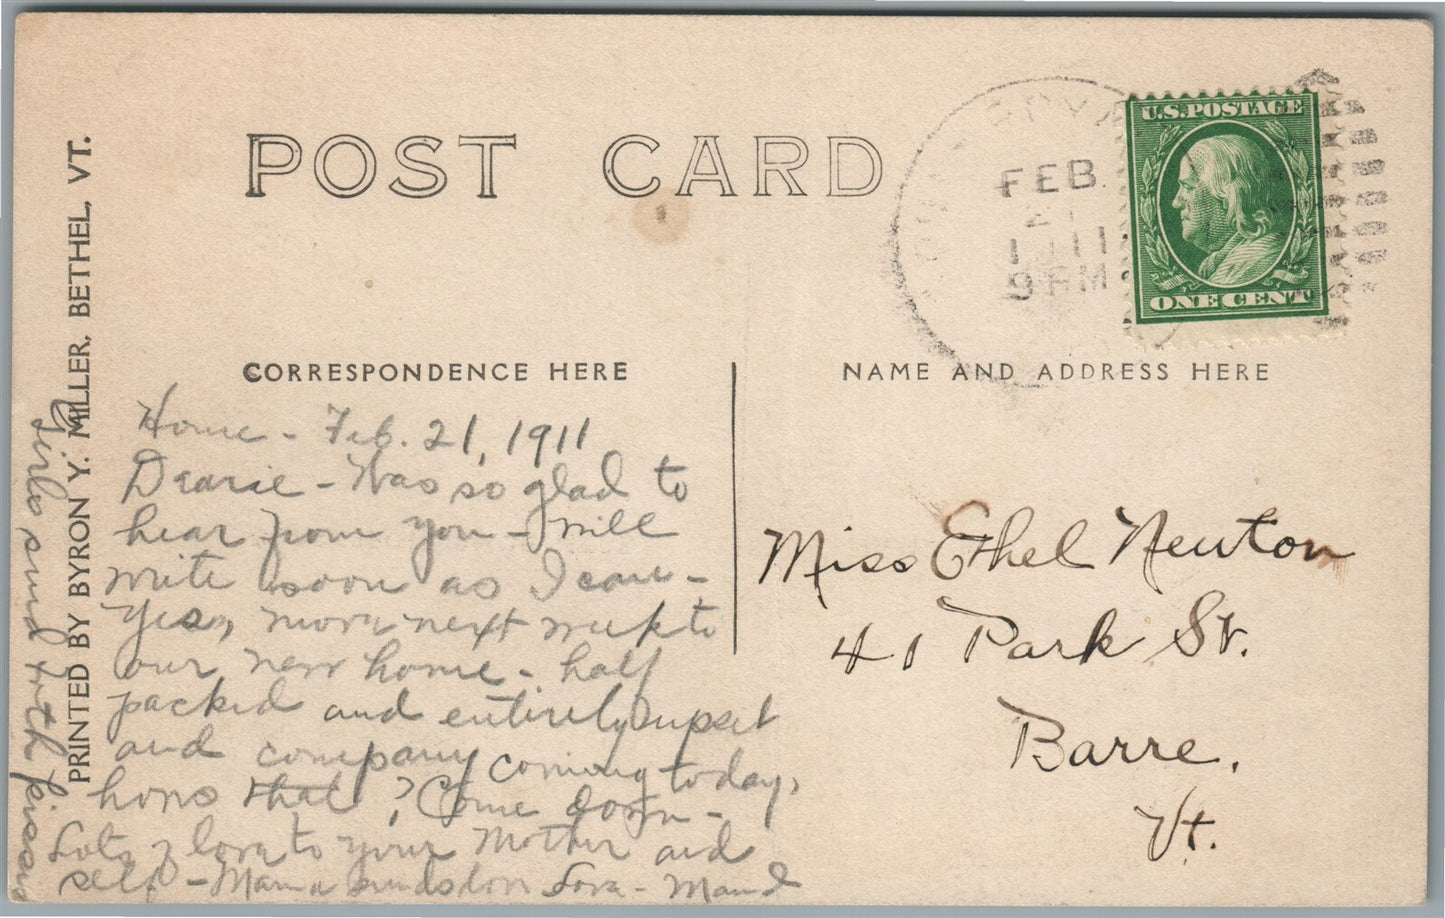 POST CARD
FEB
21
1911
9 PM
U.S. POSTAGE
ONE CENT
PRINTED BY BYRON Y. MILLER, BETHEL, VT.
CORRESPONDENCE HERE
NAME AND ADDRESS HERE
Home - Feb. 21, 1911
Dearie - Was so glad to
hear from you - Will
write soon as I can -
Yes, move next week to
our new home - half
packed and entirely upset
and company coming today,
hows that? Come down -
Lots of love to your Mother and
self - Mama sends love - Maud
Girls send kisses
Miss Ethel Newton
41 Park St.
Barre,
Vt.